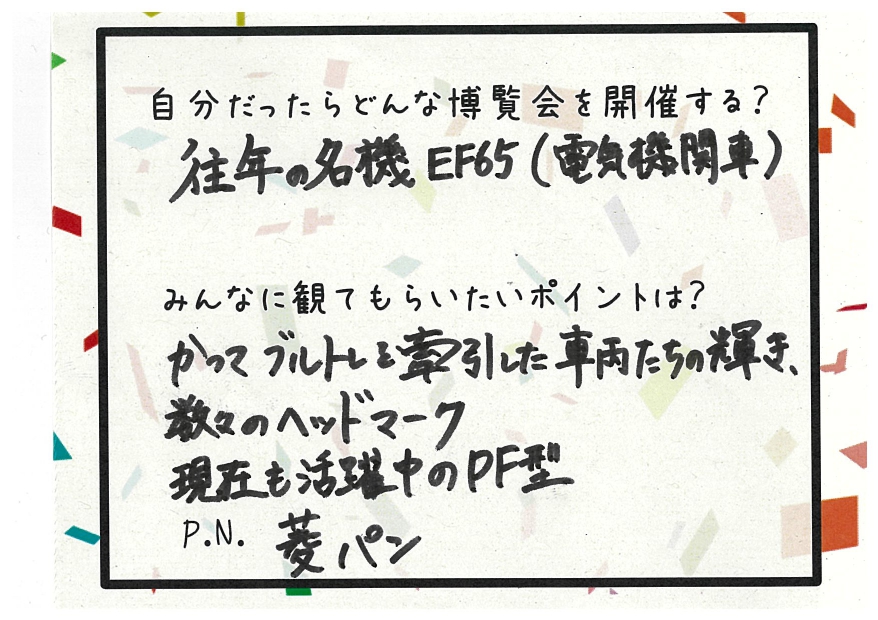 自分だったらどんな博覧会を開催する?
往年の名機 EF65(電気機関車)
みんなに観てもらいたいポイントは?
かつてブルトレを牽引した車両たちの輝き、
数々のヘッドマーク
現在も活躍中のPF型
P.N. 菱パン